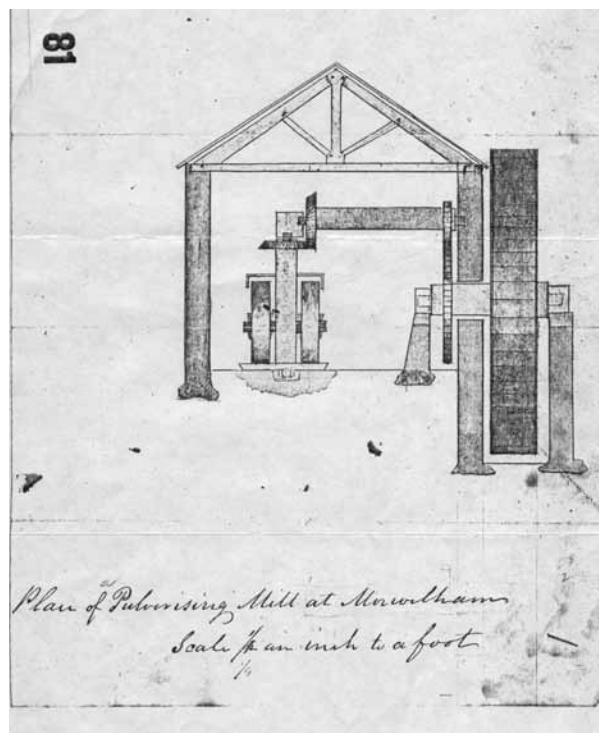 81
Plan of a Pulverising Mill at Morwellham
Scale an inch to a foot
1/4